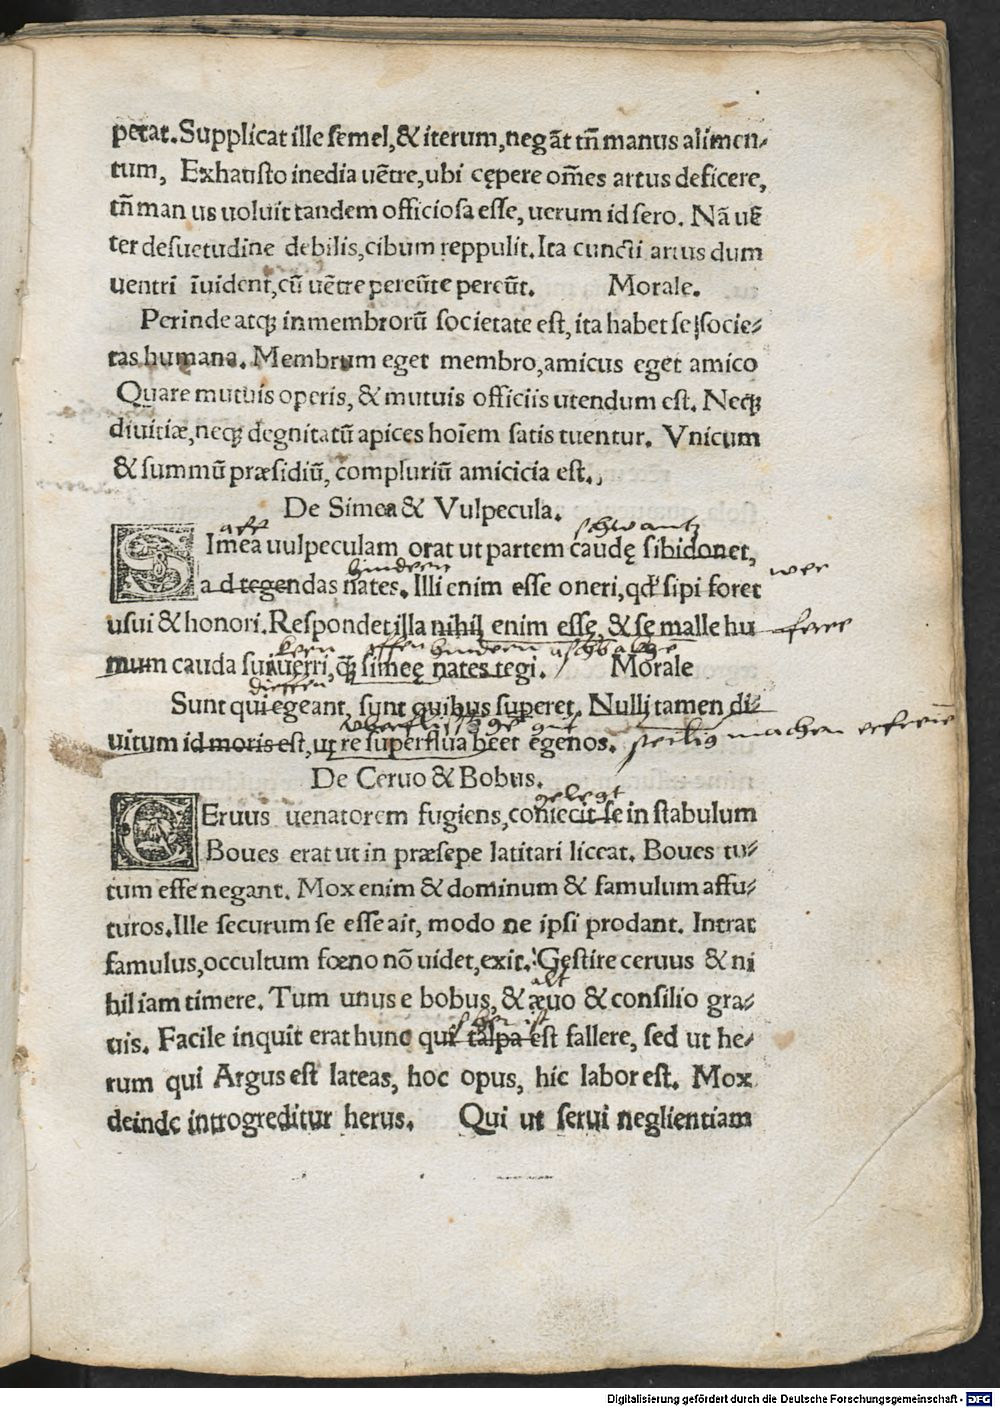 petat. Supplicat ille semel, & iterum, negāt tñ manus alimen-
tum, Exhausto inedia uētre, ubi cępere om̃es artus deficere,
tñ man us uoluit tandem officiosa esse, uerum id sero. Nā uē
ter desuetudine debilis, cibum reppulit. Ita cuncti artus dum
uentri īuident, cū uētre pereūte pereūt. Morale.
Perinde atq; in membrorū societate est, ita habet se socie-
tas humana. Membrum eget membro, amicus eget amico
Quare mutuis operis, & mutuis officiis utendum est. Neq;
diuitiæ, neq; degnitatū apices hoīem satis tuentur. Vnicum
& summū præsidiū, compluriū amicicia est.
De Simea & Vulpecula.
aff schwantz
SImea uulpeculam orat ut partem caudę sibi donet,
hindern wer
a d tegendas nates. Illi enim esse oneri, qđ sipi foret
usui & honori. Respondet illa nihil enim esse, & se malle hu
mum cauda sui uerri, q̃; simeę nates tegi. Morale
Sunt qui egeant, sunt quibus superet. Nulli tamen di-
gut
uitum id moris est, ut re superflua beet egenos. machen
De Ceruo & Bobus.
gelegt
CEruus uenatorem fugiens, coniecit se in stabulum
Boues erat ut in præsepe latitari liceat. Boues tu-
tum esse negant. Mox enim & dominum & famulum affu-
turos. Ille securum se esse ait, modo ne ipsi prodant. Intrat
famulus, occultum fœno nō uidet, exit. Gestire ceruus & ni
alt
hil iam timere. Tum unus e bobus, & æuo & consilio gra-
uis. Facile inquit erat hunc qui talpa est fallere, sed ut he-
rum qui Argus est lateas, hoc opus, hic labor est. Mox
deinde introgreditur herus. Qui ut serui neglientiam
Digitalisierung gefördert durch die Deutsche Forschungsgemeinschaft - DFG